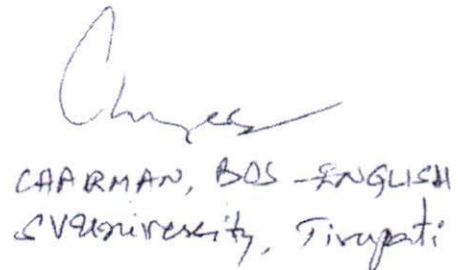 CHARMAN, BOS - ENGLISH
SVUniversity, Tirupati